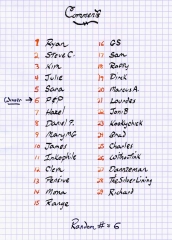 Comments
1 Ryan
2 Steve C.
3 Kim
4 Julie
5 Sara
Winner → 6 PEP
7 Hazel
8 Daniel P.
9 Mary MG
10 James
11 Inkophile
12 Clem
13 Pensive
14 Mona
15 Range
16 GS
17 Sam
18 Raffy
19 Dirck
20 Marcus A.
21 Lourdes
22 Joni B
23 Kookychick
24 Brad
25 Charles
26
27 Dannzeman
28 The Silver Lining
29 Richard
Random # = 6